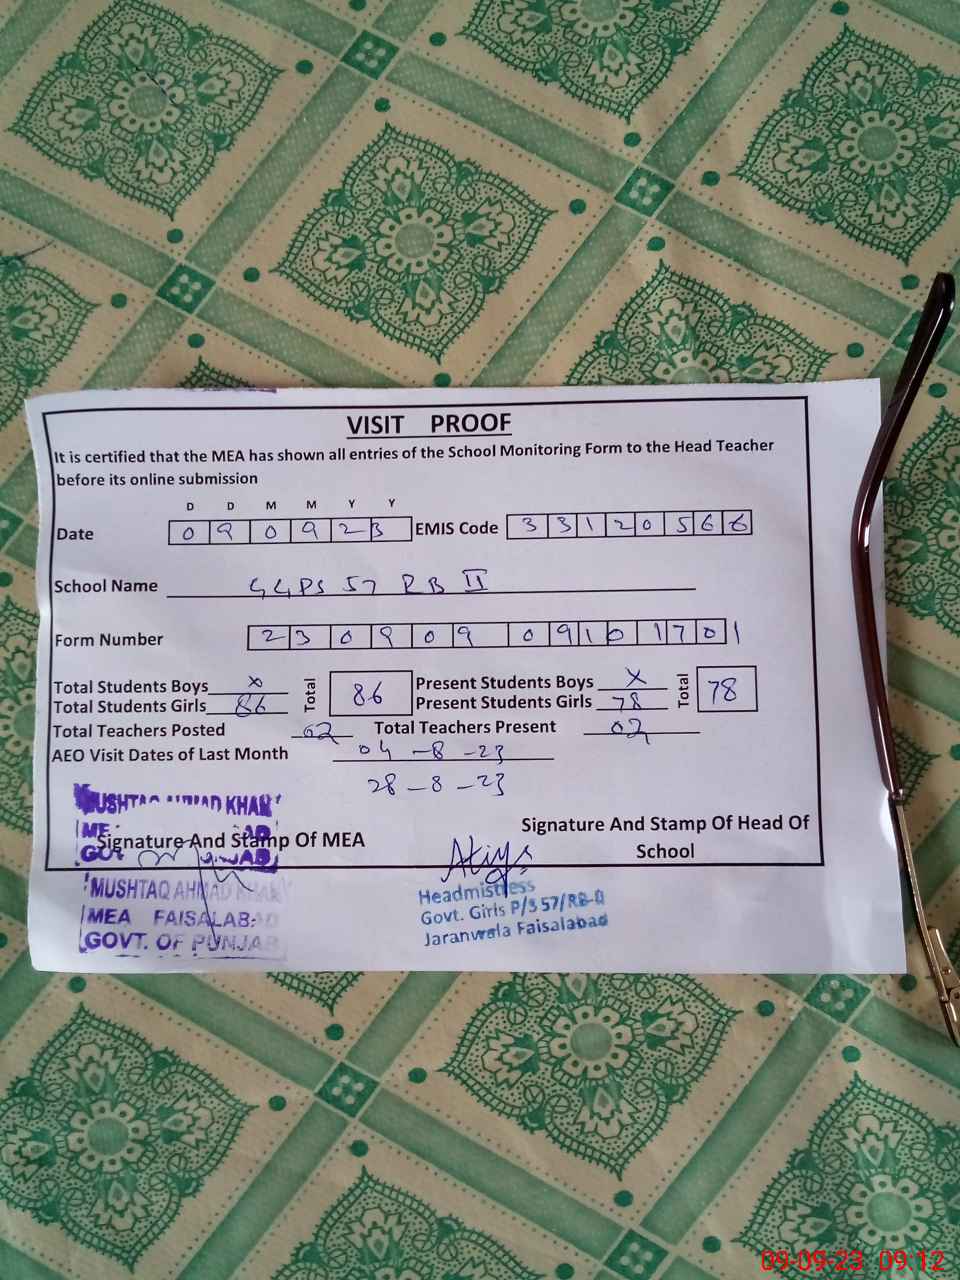 VISIT PROOF
It is certified that the MEA has shown all entries of the School Monitoring Form to the Head Teacher
before its online submission
D D M M Y Y
Date 0 9 0 9 2 3 EMIS Code 3 3 1 2 0 5 6 6
School Name GGPS 57 RB II
Form Number 2 3 0 9 0 9 0 9 1 0 1 7 0 1
Total Students Boys x Total 86 Present Students Boys x Total 78
Total Students Girls 86 Present Students Girls 78
Total Teachers Posted 02 Total Teachers Present 02
AEO Visit Dates of Last Month 04-8-23
28-8-23
MUSHTAQ AHMAD KHAN
Signature And Stamp Of MEA
Signature And Stamp Of Head Of
School
Atiya
MUSHTAQ AHMAD KHAN
MEA FAISALABAD
GOVT. OF PUNJAB
Headmistress
Govt. Girls P/S 57/RB-II
Jaranwala Faisalabad
09-09-23 09:12